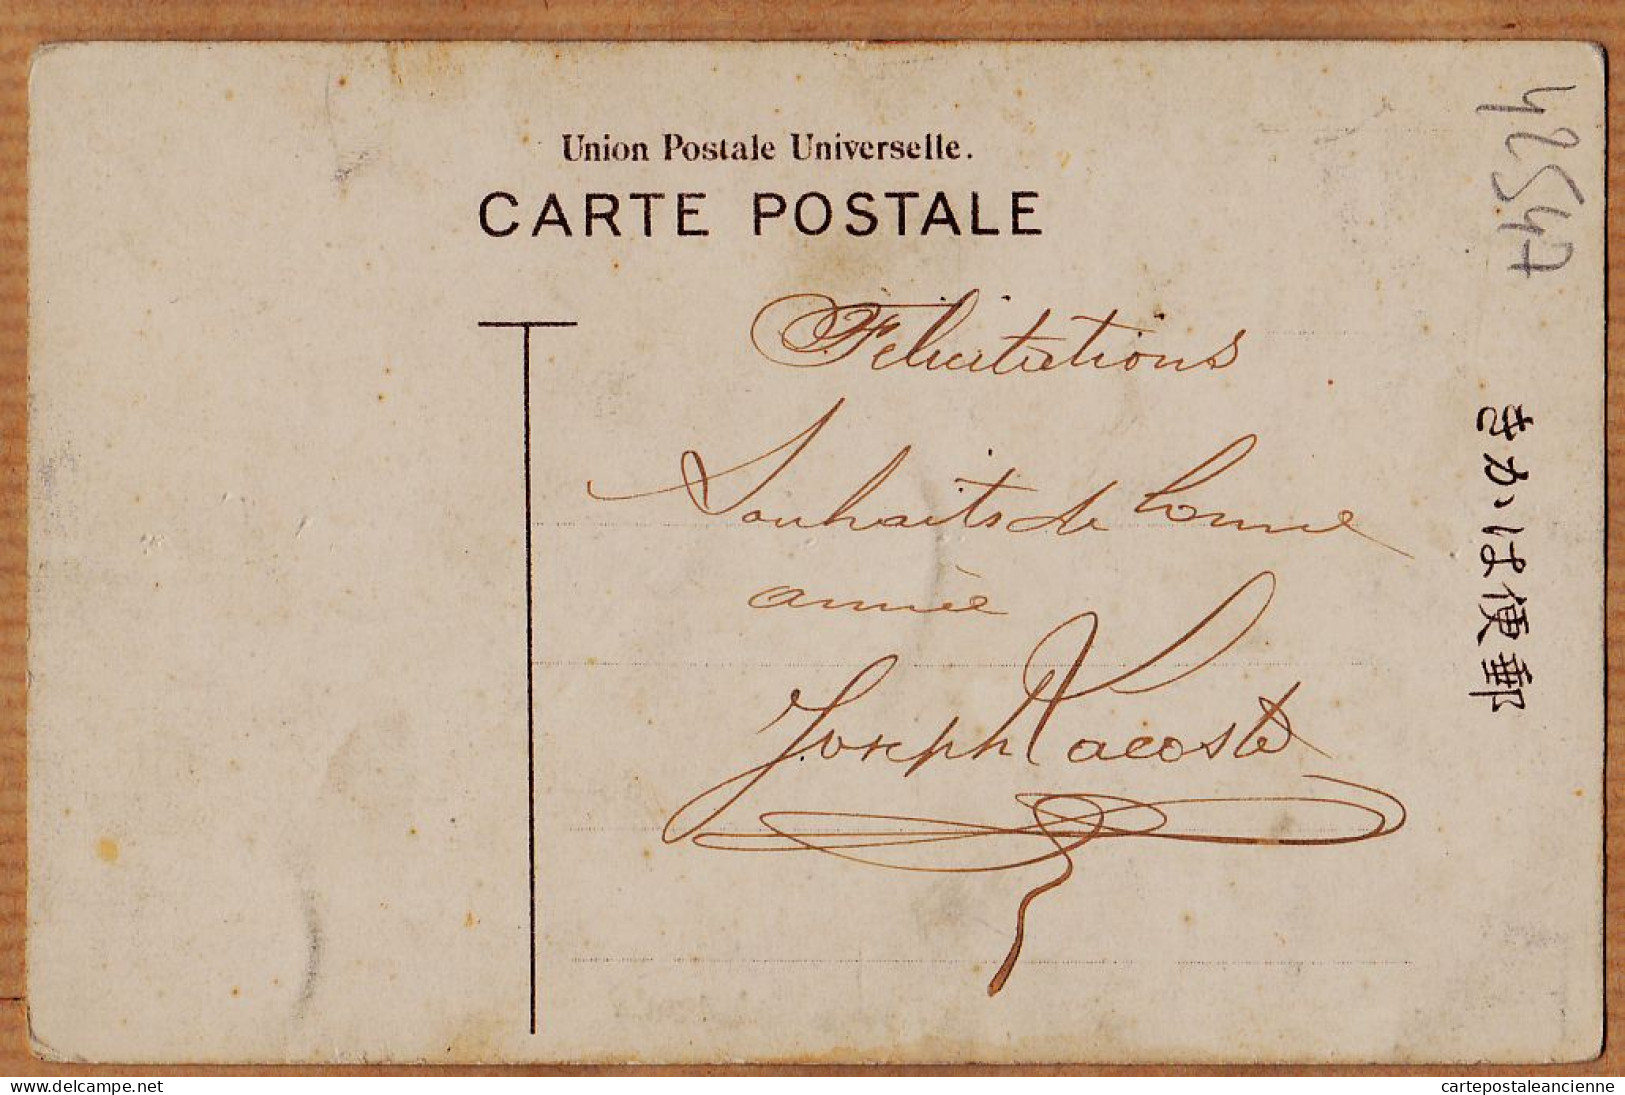 Union Postale Universelle.
CARTE POSTALE
42547
Félicitations
Souhaits de bonne
année
Joseph Lacoste
きかは便郵
delcampe.net
cartepostaleancienne